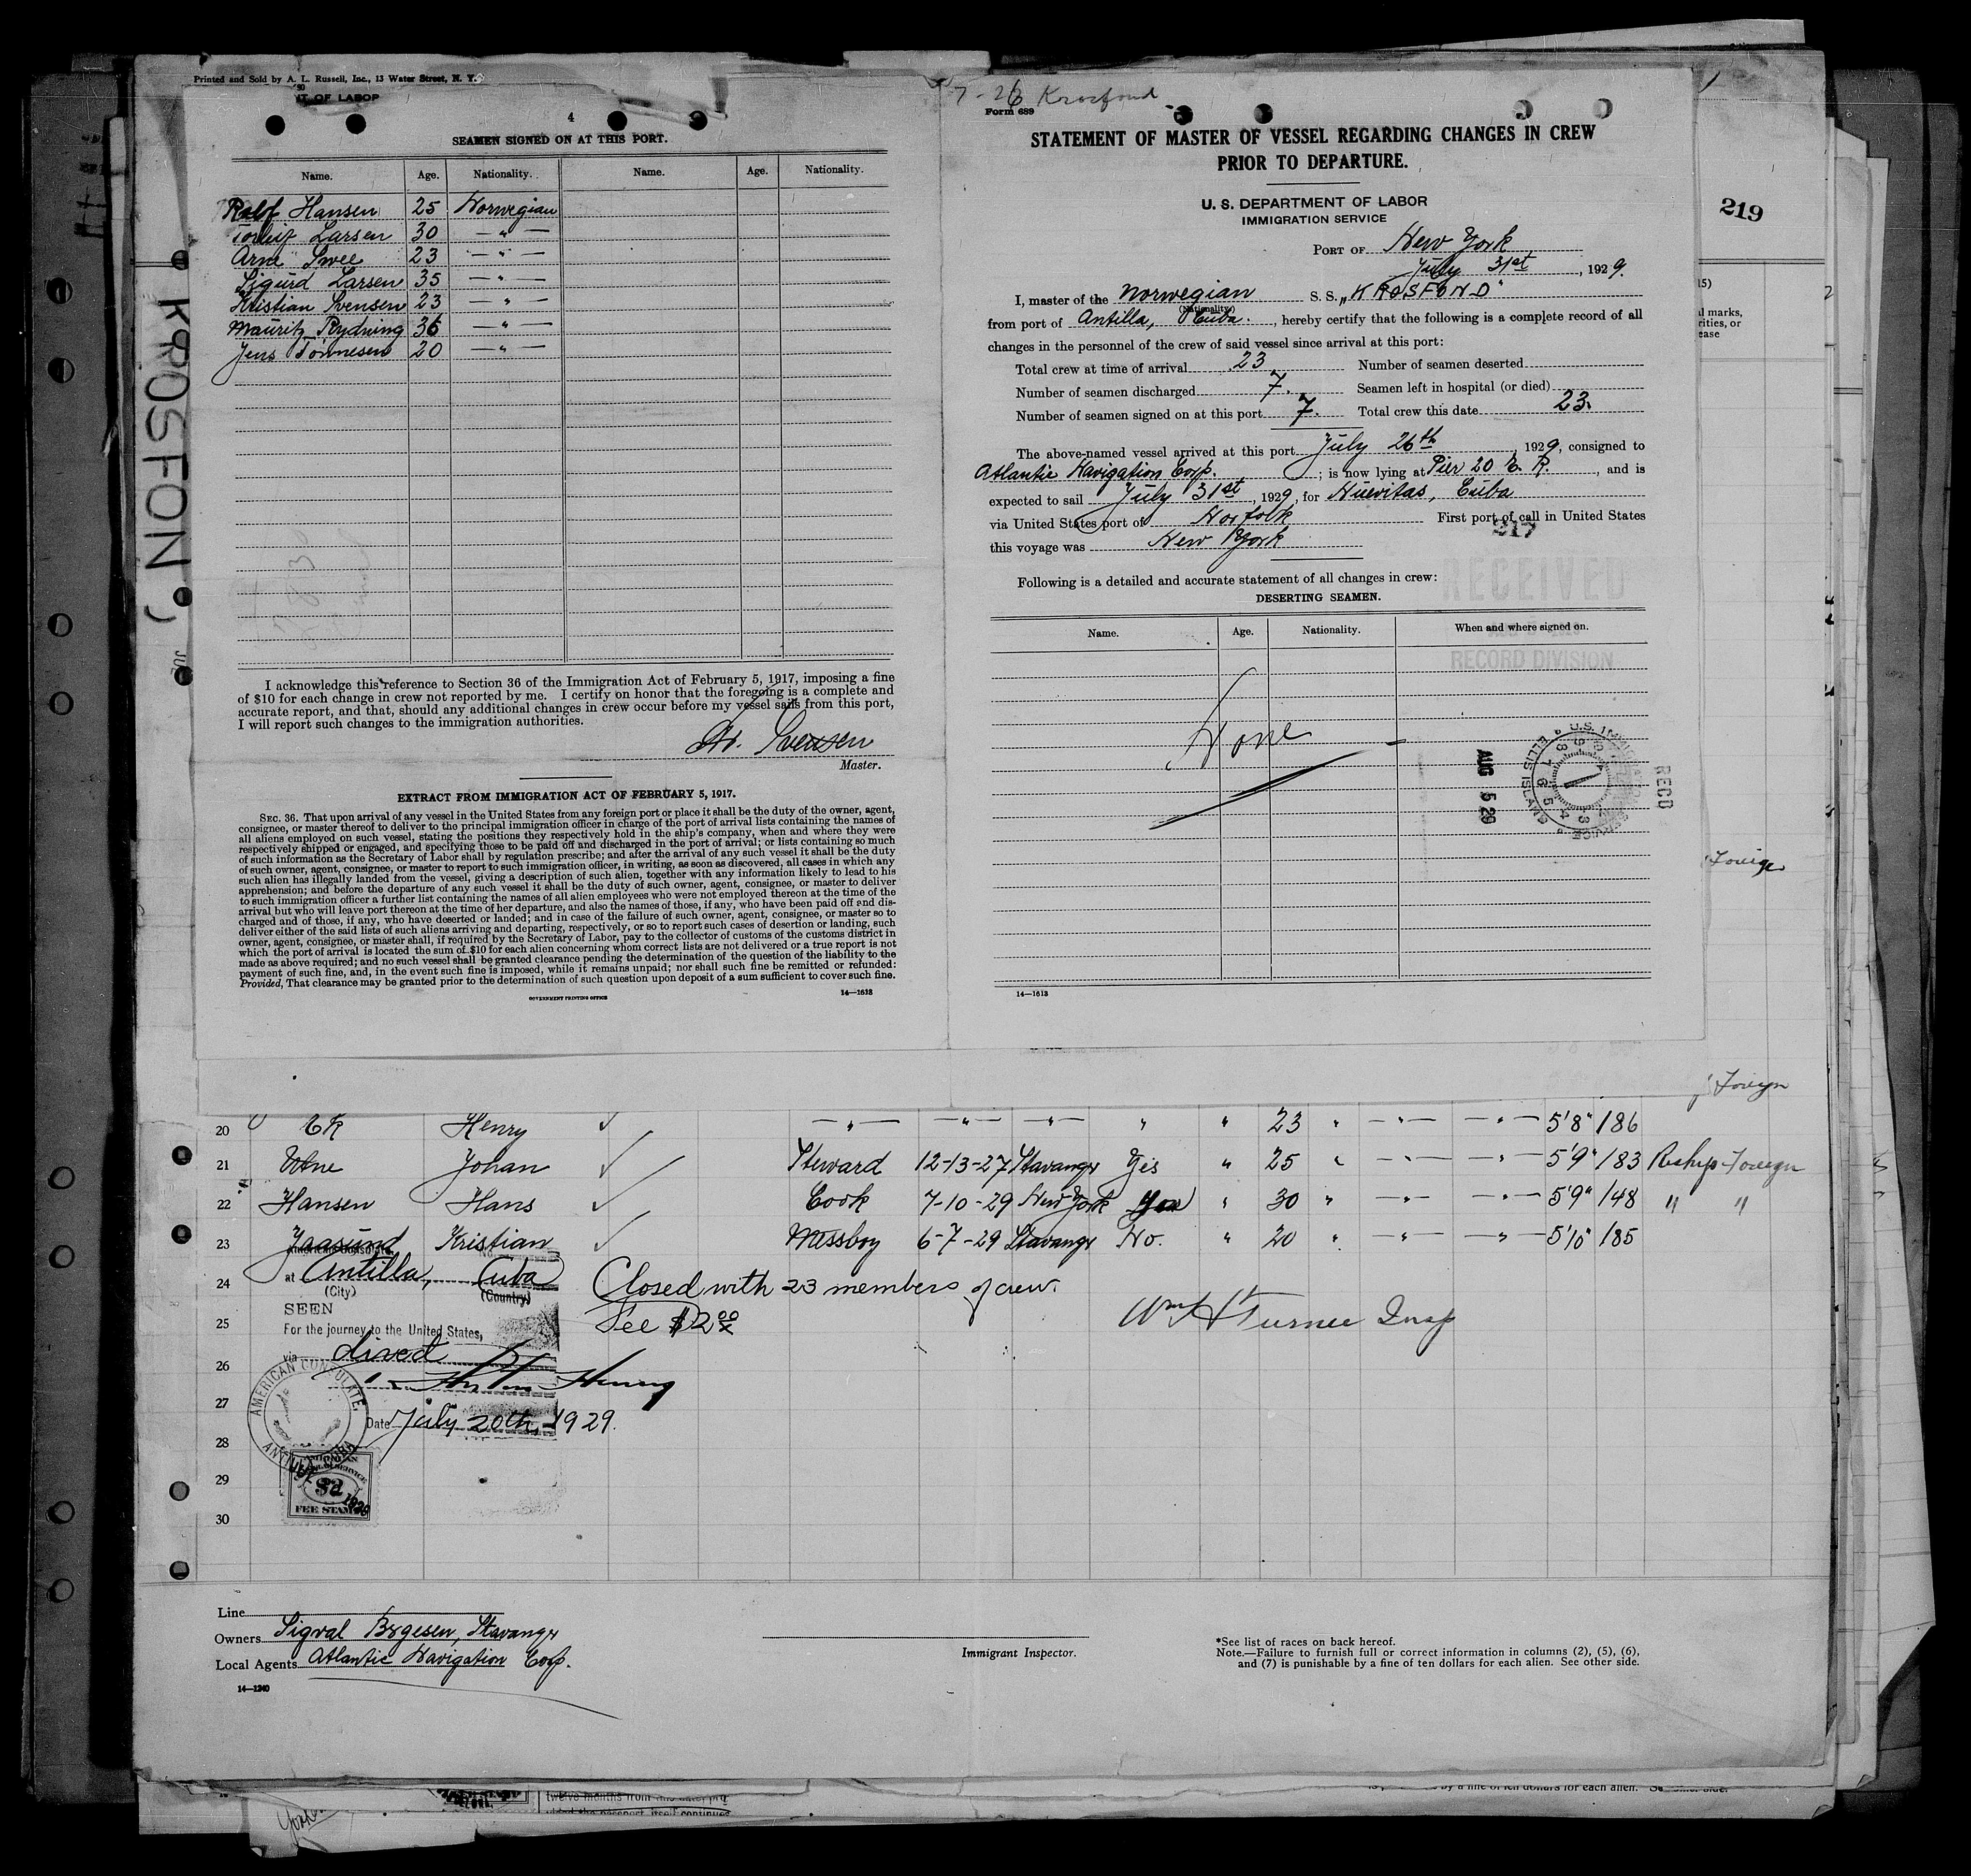 Printed and Sold by A. L. Russell, Inc., 13 Water Street, N. Y.
T. OF LABOR
4
SEAMEN SIGNED ON AT THIS PORT.
Name. Age. Nationality. Name. Age. Nationality.
Rolf Hansen 25 Norwegian
Torleif Larsen 30 — " —
Arne Swee 23 — " —
Sigurd Larsen 35 — " —
Kristian Svensen 23 — " —
Mauritz Rydning 36 — " —
Jens Tönnesen 20 — " —
I acknowledge this reference to Section 36 of the Immigration Act of February 5, 1917, imposing a fine
of $10 for each change in crew not reported by me. I certify on honor that the foregoing is a complete and
accurate report, and that, should any additional changes in crew occur before my vessel sails from this port,
I will report such changes to the immigration authorities.
Svensen
Master.
EXTRACT FROM IMMIGRATION ACT OF FEBRUARY 5, 1917.
SEC. 36. That upon arrival of any vessel in the United States from any foreign port or place it shall be the duty of the owner, agent,
consignee, or master thereof to deliver to the principal immigration officer in charge of the port of arrival lists containing the names of
all aliens employed on such vessel, stating the positions they respectively hold in the ship's company, when and where they were
respectively shipped or engaged, and specifying those to be paid off and discharged in the port of arrival; or lists containing so much
of such information as the Secretary of Labor shall by regulation prescribe; and after the arrival of any such vessel it shall be the duty
of such owner, agent, consignee, or master to report to such immigration officer, in writing, as soon as discovered, all cases in which any
such alien has illegally landed from the vessel, giving a description of such alien, together with any information likely to lead to his
apprehension; and before the departure of any such vessel it shall be the duty of such owner, agent, consignee, or master to deliver
to such immigration officer a further list containing the names of all alien employees who were not employed thereon at the time of the
arrival but who will leave port thereon at the time of her departure, and also the names of those, if any, who have been paid off and dis-
charged and of those, if any, who have deserted or landed; and in case of the failure of such owner, agent, consignee, or master so to
deliver either of the said lists of such aliens arriving and departing, respectively, or so to report such cases of desertion or landing, such
owner, agent, consignee, or master shall, if required by the Secretary of Labor, pay to the collector of customs of the customs district in
which the port of arrival is located the sum of $10 for each alien concerning whom correct lists are not delivered or a true report is not
made as above required; and no such vessel shall be granted clearance pending the determination of the question of the liability to the
payment of such fine, and, in the event such fine is imposed, while it remains unpaid; nor shall such fine be remitted or refunded:
Provided, That clearance may be granted prior to the determination of such question upon deposit of a sum sufficient to cover such fine.
GOVERNMENT PRINTING OFFICE
14—1613
7-26 Krosfond
Form 689
STATEMENT OF MASTER OF VESSEL REGARDING CHANGES IN CREW
PRIOR TO DEPARTURE.
U. S. DEPARTMENT OF LABOR
IMMIGRATION SERVICE
PORT OF New York
July 31st, 1929.
I, master of the Norwegian S. S. "KROSFOND"
(Nationality)
from port of Antilla, Cuba., hereby certify that the following is a complete record of all
changes in the personnel of the crew of said vessel since arrival at this port:
Total crew at time of arrival 23 Number of seamen deserted
Number of seamen discharged 7. Seamen left in hospital (or died)
Number of seamen signed on at this port 7. Total crew this date 23.
The above-named vessel arrived at this port July 26th, 1929, consigned to
Atlantic Navigation Corp.; is now lying at Pier 20 E. R., and is
expected to sail July 31st, 1929, for Nuevitas, Cuba
via United States port of Norfolk First port of call in United States
217
this voyage was New York
Following is a detailed and accurate statement of all changes in crew:
RECEIVED
DESERTING SEAMEN.
Name. Age. Nationality. When and where signed on.
RECORD DIVISION
None
AUG 5 29
RECD
14—1613
219
15)
l marks,
rities, or
ease
KROSFOND
Foreign
Foreign
20 Ek Henry — " — — " — — " — " " 23 " — " — — " — 5'8" 186
21 Johan Steward 12-13-27 Stavanger Yes " 25 " — " — — " — 5'9" 183 Reship Foreign
22 Hansen Hans Cook 7-10-29 New York Yes " 30 " — " — — " — 5'9" 148 " "
23 Jaasund Kristian Messboy 6-7-29 Stavanger No. " 20 " — " — — " — 5'10" 185
American Consulate
24 at Antilla, Cuba Closed with 23 members of crew.
(City) (Country)
SEEN
25 For the journey to the United States, Fee $2.00 Wm H Turner Insp
26 via direct
AMERICAN CONSULATE
27 Date July 20th, 1929.
28
29 $2 1929
FEE STAMP
30
Line
Owners Sigval Bergesen, Stavanger
Local Agents Atlantic Navigation Corp.
14—1240
Immigrant Inspector.
*See list of races on back hereof.
Note.—Failure to furnish full or correct information in columns (2), (5), (6),
and (7) is punishable by a fine of ten dollars for each alien. See other side.
by a fine of ten dollars for each alien.
twelve months from